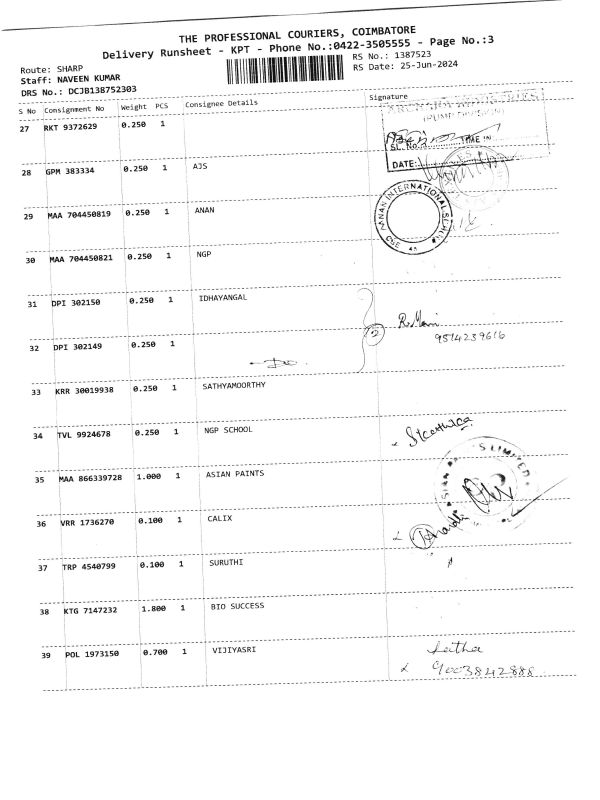 THE PROFESSIONAL COURIERS, COIMBATORE
Delivery Runsheet - KPT - Phone No.:0422-3505555 - Page No.:3
Route: SHARP
RS No.: 1387523
Staff: NAVEEN KUMAR
RS Date: 25-Jun-2024
DRS No.: DCJB138752303
S No Consignment No Weight PCS Consignee Details Signature
27 RKT 9372629 0.250 1
(PUMP DIVISION)
SL. No. TIME IN
DATE:
28 GPM 383334 0.250 1 AJS
29 MAA 704450819 0.250 1 ANAN
ANAN INTERNATIONAL SCHOOL
CBE
30 MAA 704450821 0.250 1 NGP
31 DPI 302150 0.250 1 IDHAYANGAL
2 R. Mani
9514239616
32 DPI 302149 0.250 1
Do
33 KRR 30019938 0.250 1 SATHYAMOORTHY
34 TVL 9924678 0.250 1 NGP SCHOOL
35 MAA 866339728 1.000 1 ASIAN PAINTS
LIMITED
36 VRR 1736270 0.100 1 CALIX
37 TRP 4540799 0.100 1 SURUTHI
38 KTG 7147232 1.800 1 BIO SUCCESS
39 POL 1973150 0.700 1 VIJIYASRI
Latha
9003842888